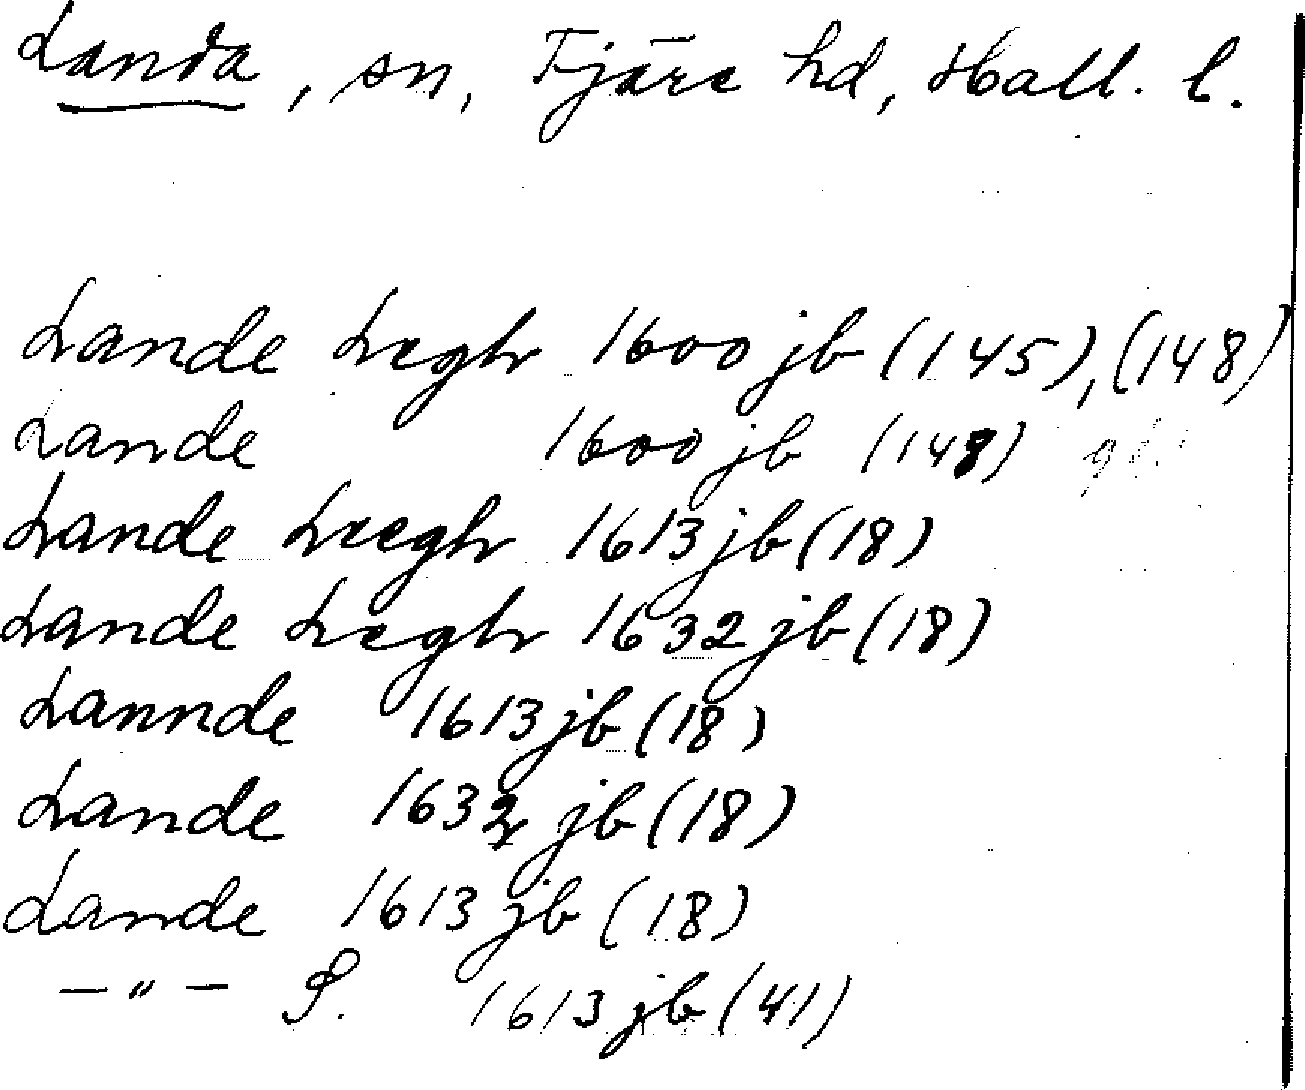 Landa, sn, Fjäre hd, Hall. l.
Lande Legh 1600 jb (145), (148)
Lande 1600 jb (148)
Lande Læegh 1613 jb (18)
Lande Legh 1632 jb (18)
Lannde 1613 jb (18)
Lande 1632 jb (18)
Lande 1613 jb (18)
— " — S. 1613 jb (41)